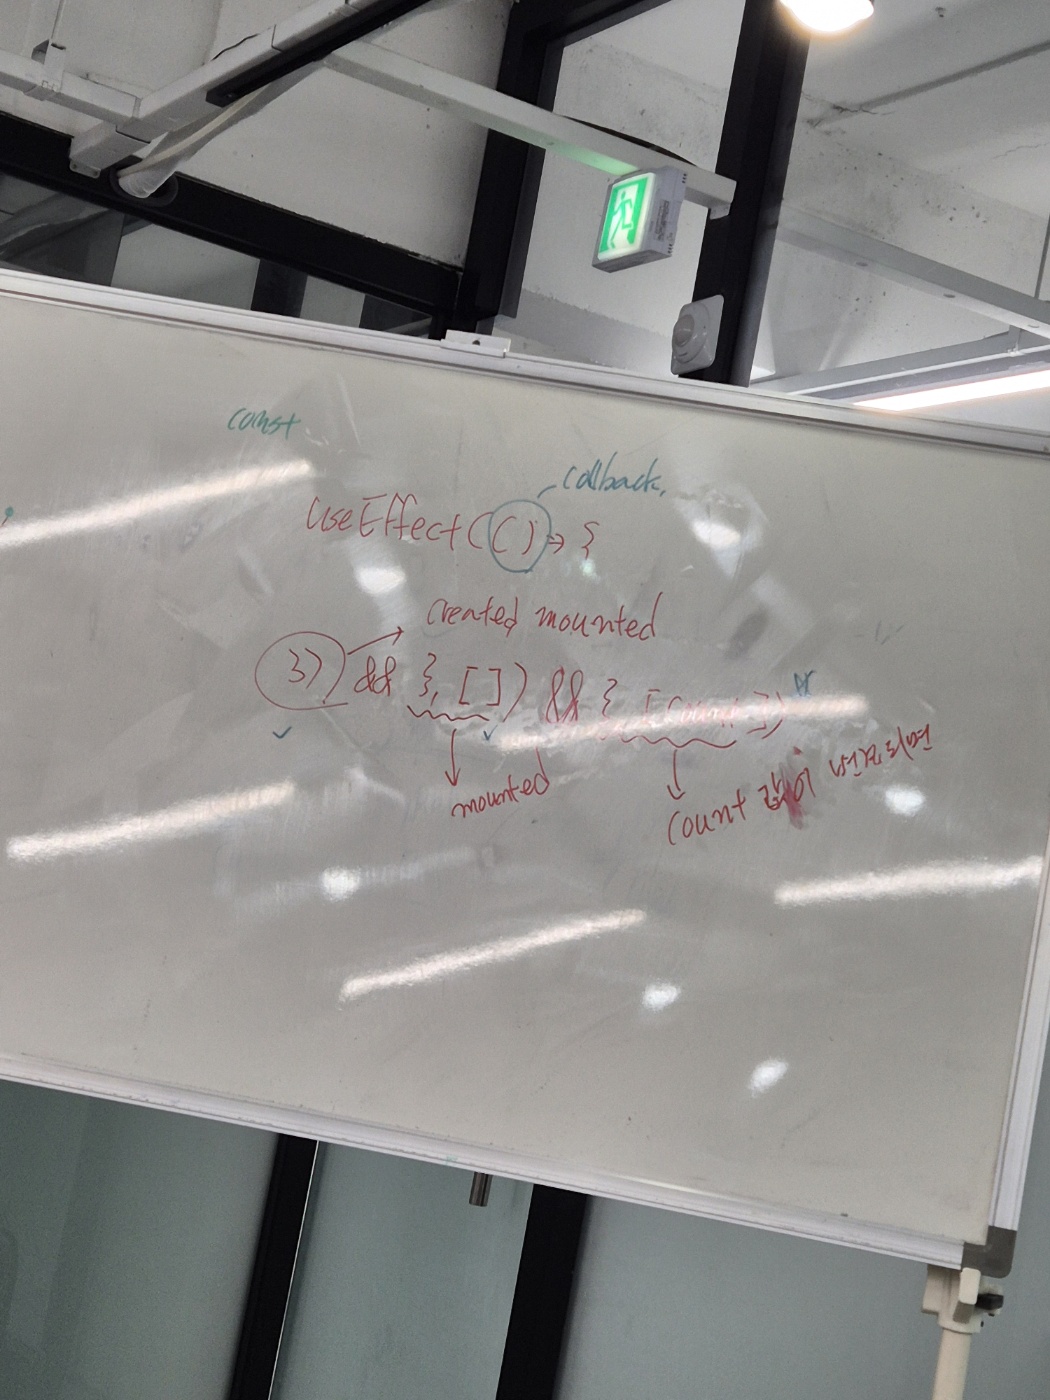 const
callback,
useEffect(() => {
created mounted
}) && }, []) && }, [count])
mounted
count 값이 변경되면